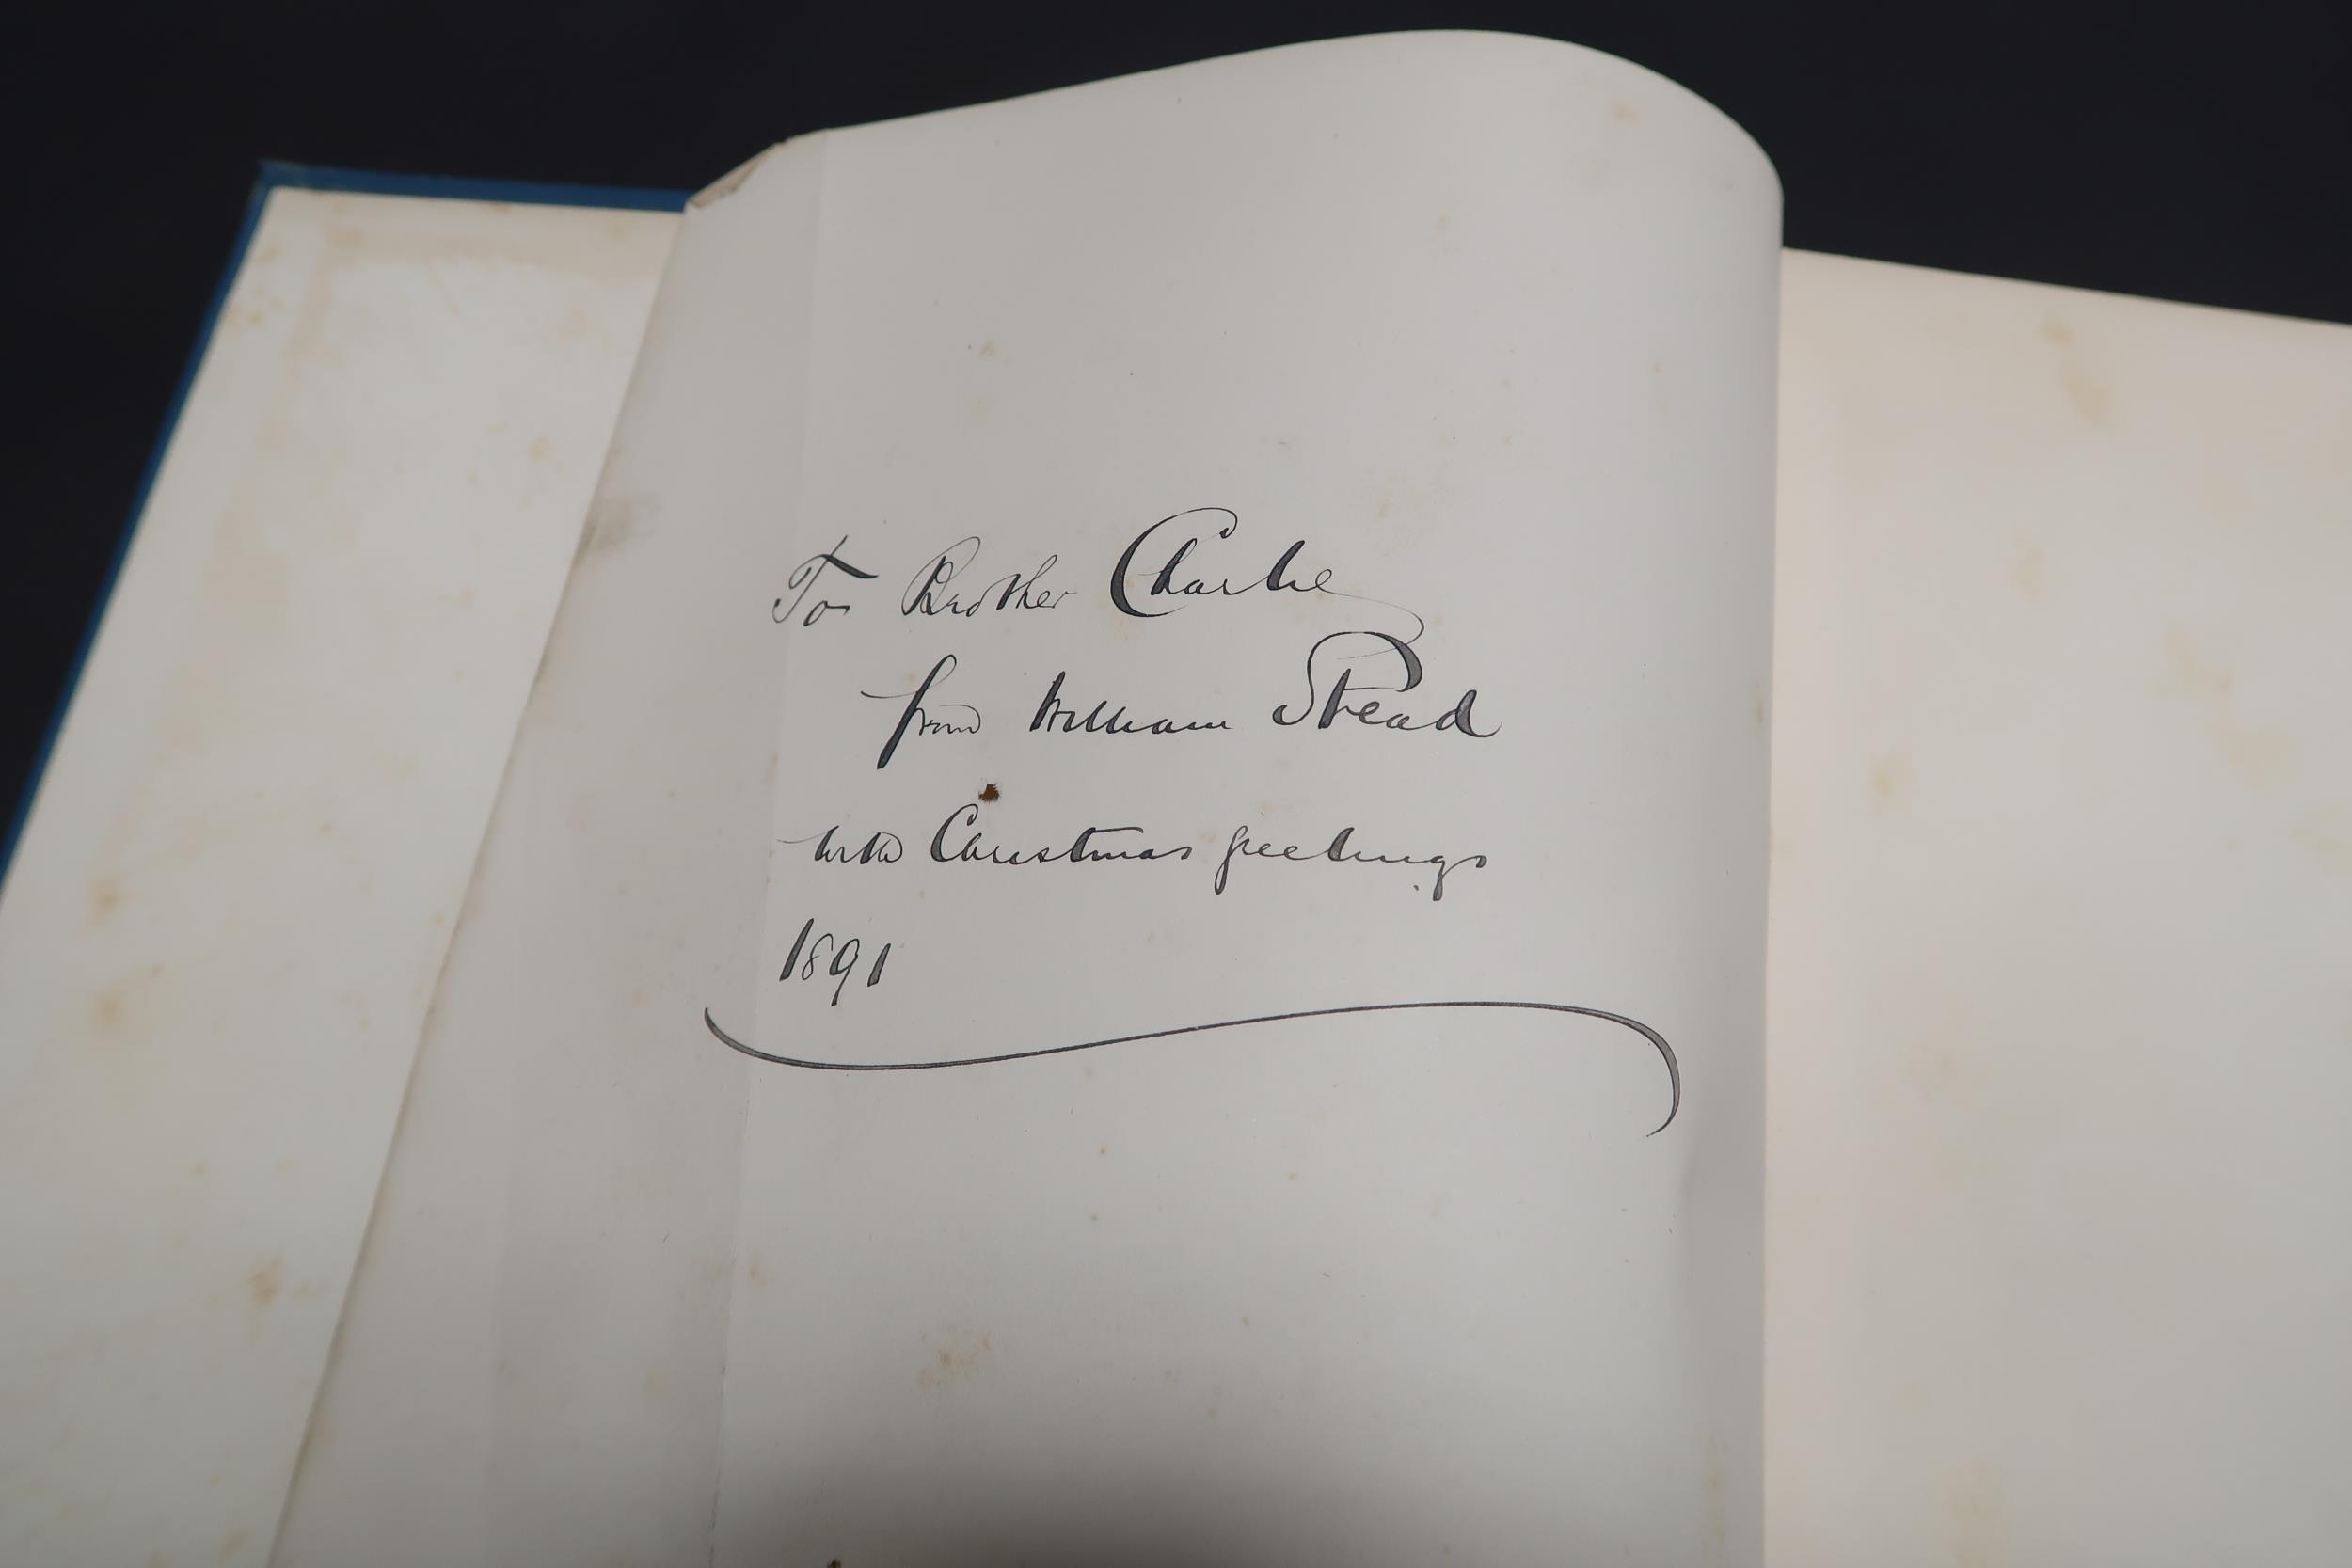 To Brother Charlie
from William Stead
with Christmas greetings
1891